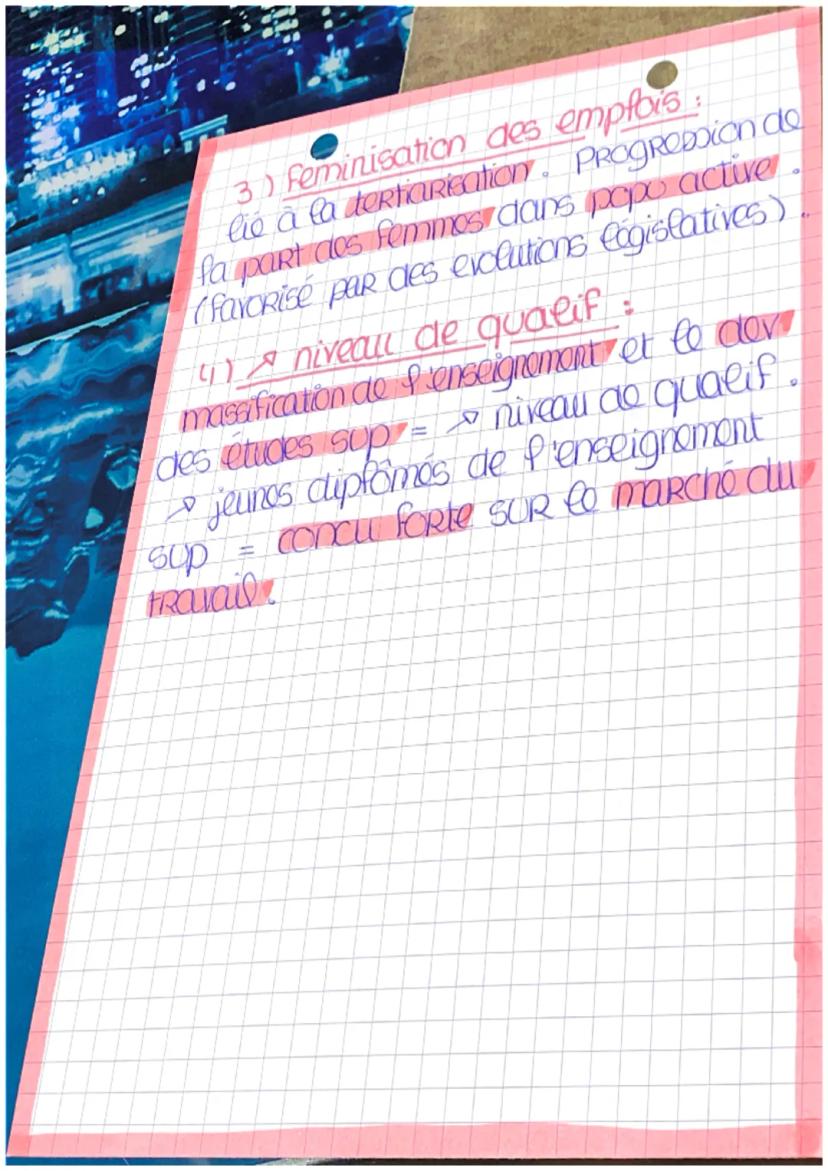 3) feminisation des emplois :
lié à la tertiarisation. Progression de
la part des femmes dans popu active.
(favorisé par des evolutions législatives).
4) ↗ niveau de qualif :
massification de l'enseignement et le dev
des études sup = ↗ niveau de qualif.
↗ jeunes diplômés de l'enseignement
sup = concu forte sur le marché du
travail.